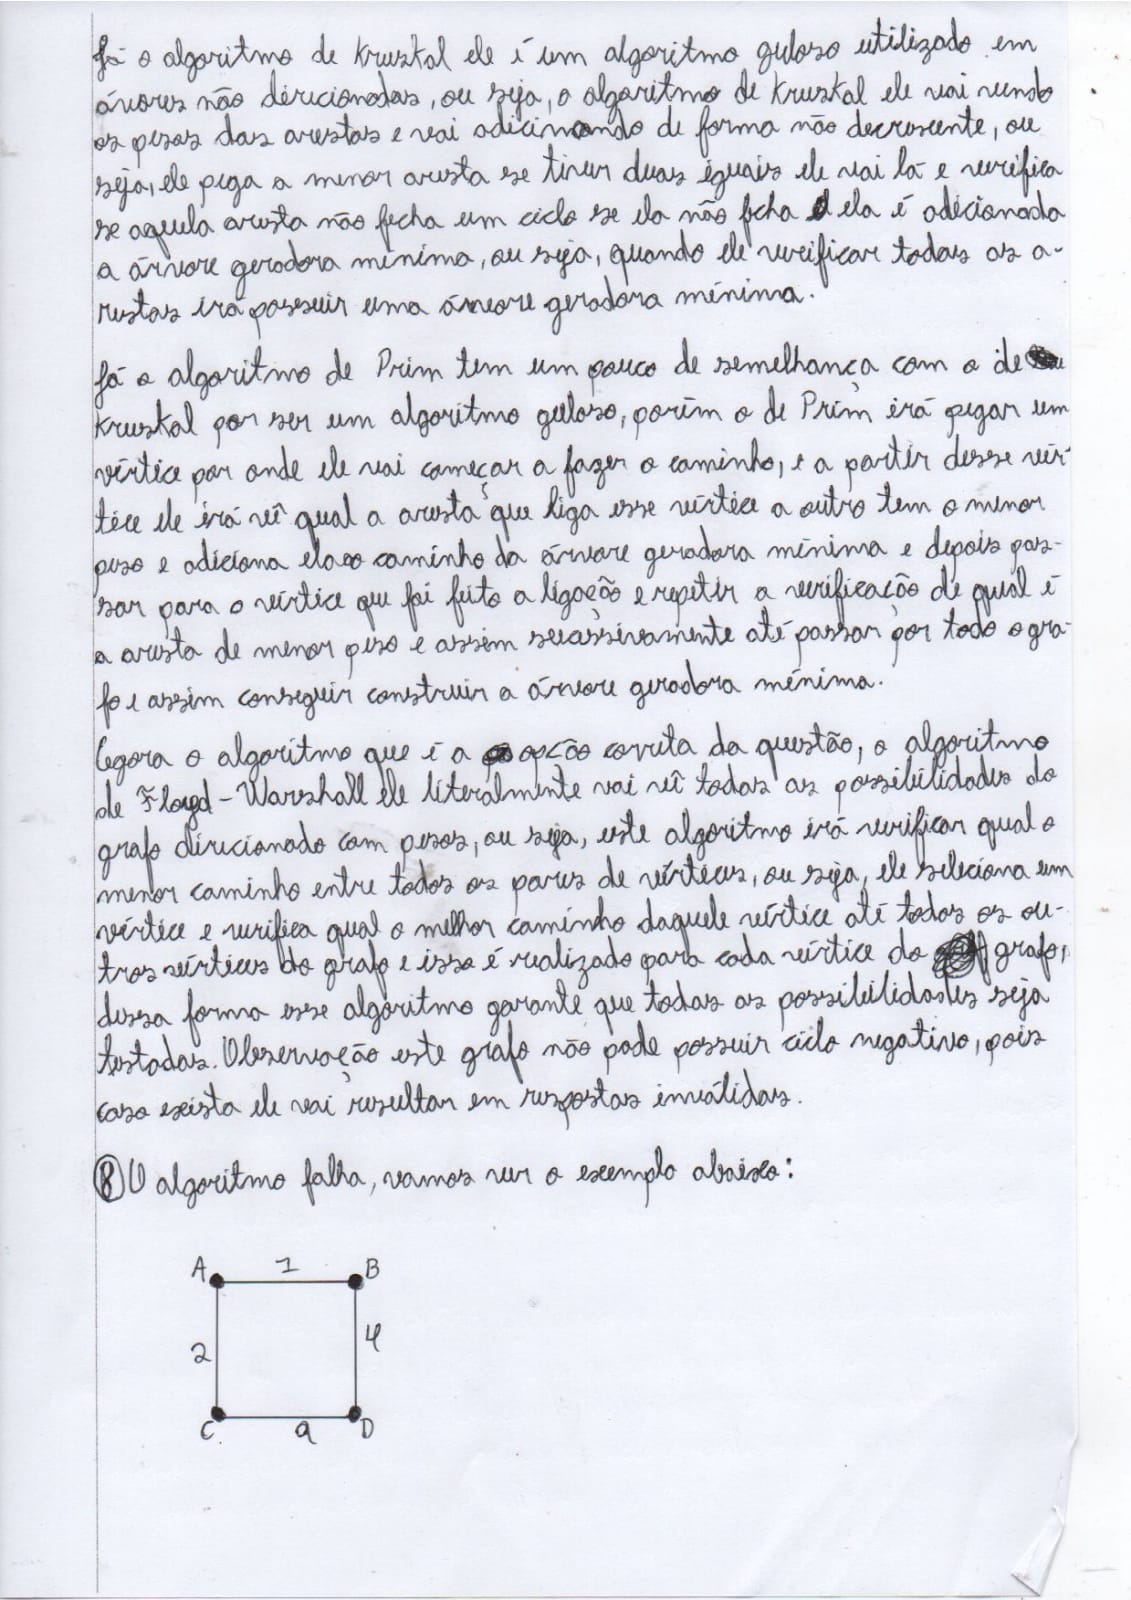 Já o algoritmo de Kruskal ele é um algoritmo guloso utilizado em
árvores não direcionadas, ou seja, o algoritmo de Kruskal ele vai vendo
os pesos das arestas e vai adicionando de forma não decrescente, ou
seja, ele pega a menor aresta se tiver duas iguais ele vai lá e verifica
se aquela aresta não fecha um ciclo se ela não fecha ela é adicionada
a árvore geradora mínima, ou seja, quando ele verificar todas as a-
restas irá possuir uma árvore geradora mínima.
Já o algoritmo de Prim tem um pouco de semelhança com o de
Kruskal por ser um algoritmo guloso, porém o de Prim irá pegar um
vértice por onde ele vai começar a fazer o caminho, e a partir desse vér-
tice ele irá vê qual a aresta que liga esse vértice a outro tem o menor
peso e adiciona ela ao caminho da árvore geradora mínima e depois pas-
sar para o vértice que foi feito a ligação e repetir a verificação de qual é
a aresta de menor peso e assim sucessivamente até passar por todo o gra-
fo e assim conseguir construir a árvore geradora mínima.
Agora o algoritmo que é a opção correta da questão, o algoritmo
de Floyd-Warshall ele literalmente vai vê todas as possibilidades do
grafo direcionado com pesos, ou seja, este algoritmo irá verificar qual o
menor caminho entre todos os pares de vértices, ou seja, ele seleciona um
vértice e verifica qual o melhor caminho daquele vértice até todos os ou-
tros vértices do grafo e isso é realizado para cada vértice do grafo,
dessa forma esse algoritmo garante que todas as possibilidades seja
testadas. Observação este grafo não pode possuir ciclo negativo, pois
caso exista ele vai resultar em respostas inválidas.
8 O algoritmo falha, vamos ver o exemplo abaixo:
A 1 B
2 4
C 9 D